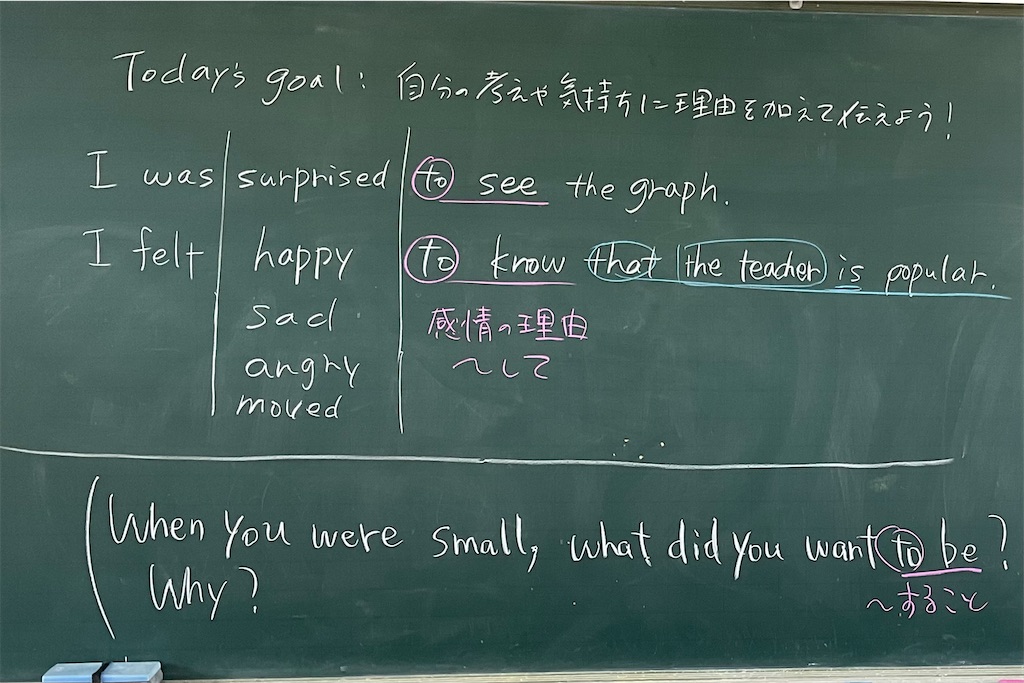 Today's goal: 自分の考えや気持ちに理由を加えて伝えよう!
I was surprised to see the graph.
I felt happy to know that the teacher is popular.
sad
感情の理由
angry
〜して
moved
When you were small, what did you want to be?
Why?
〜すること